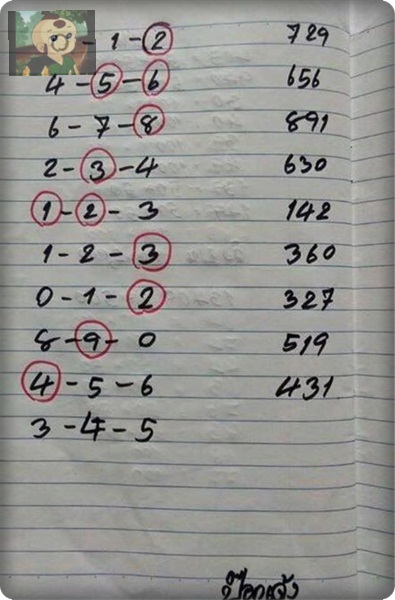 - 1 - 2 729
4 - 5 - 6 656
6 - 7 - 8 891
2 - 3 - 4 630
1 - 2 - 3 142
1 - 2 - 3 360
0 - 1 - 2 327
8 - 9 - 0 519
4 - 5 - 6 431
3 - 4 - 5